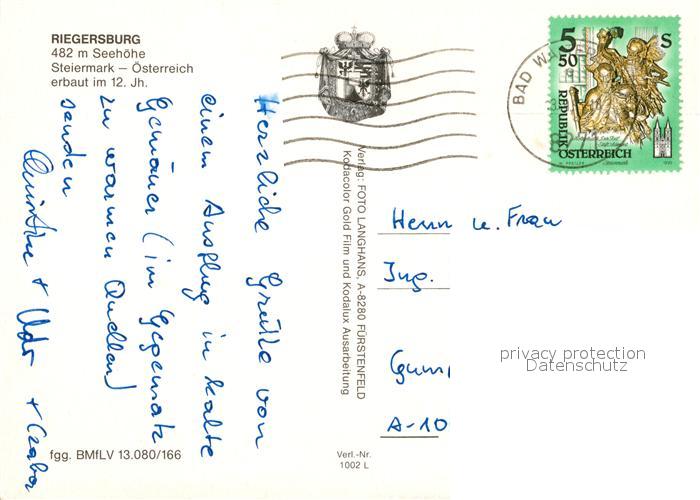 RIEGERSBURG
482 m Seehöhe
Steiermark – Österreich
erbaut im 12. Jh.
Herzliche Grüße von
einem Ausflug in kalte
Gemäuer (im Gegensatz
zu warmen Quellen)
senden
+ Udo + Csaba
fgg. BMfLV 13.080/166
Verlag: FOTO LANGHANS, A-8280 FÜRSTENFELD
Kodacolor Gold Film und Kodalux Ausarbeitung
Verl.-Nr.
1002 L
BAD
5 50 S
REPUBLIK
ÖSTERREICH
Herrn u. Frau
Ing.
A-10
privacy protection
Datenschutz